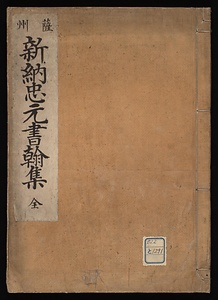 薩州
新納忠元書翰集
全